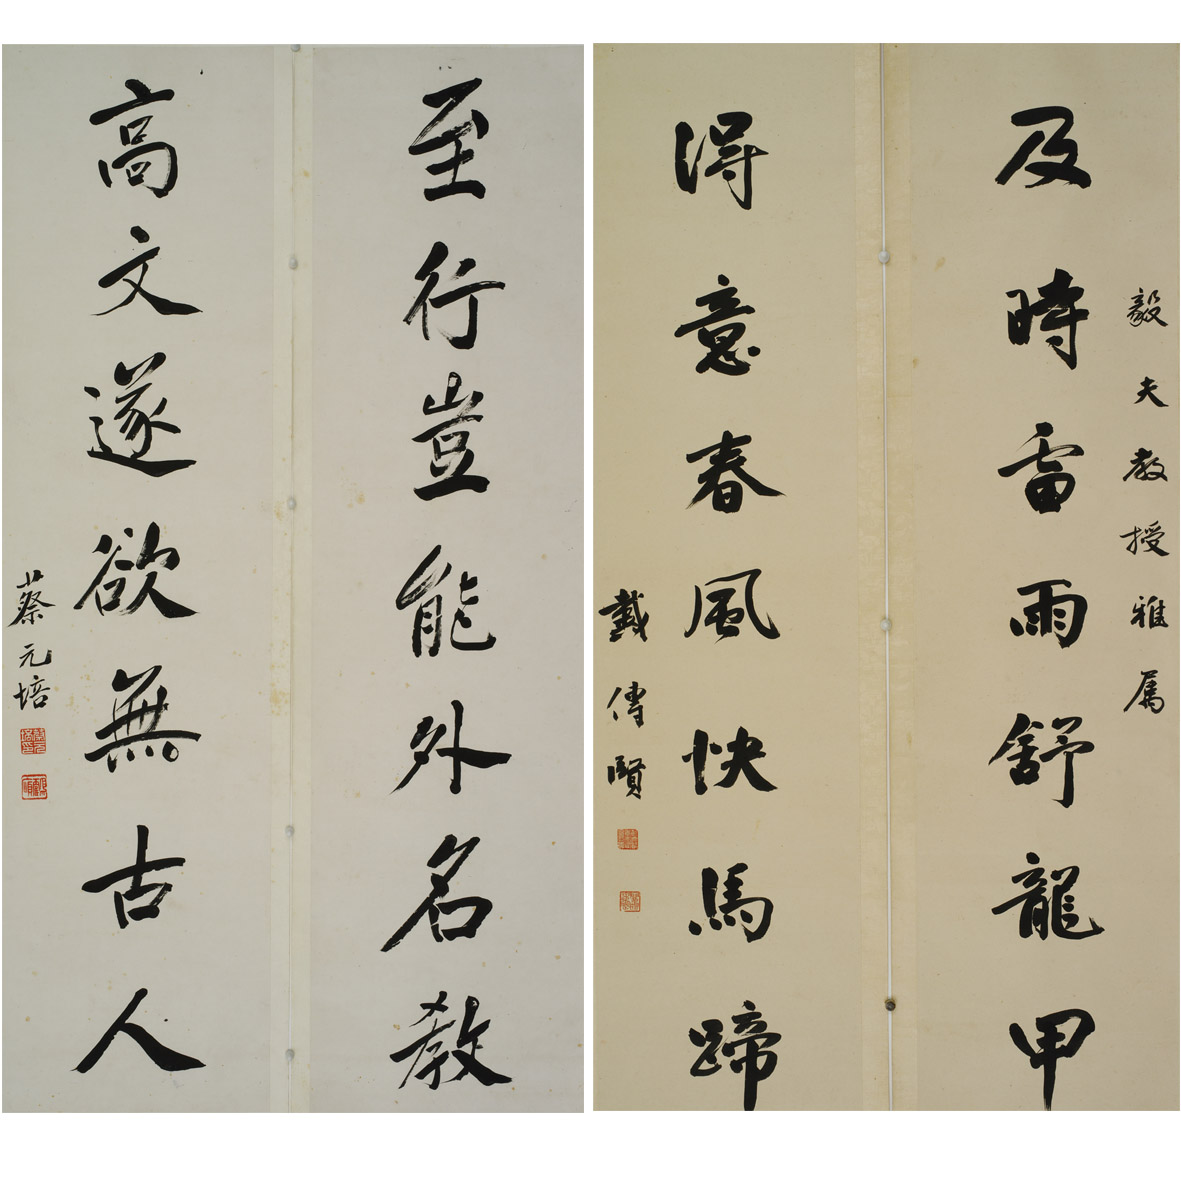 毅夫教授雅属
及時雷雨舒龍甲
得意春風快馬蹄
戴傳賢
至行豈能外名教
高文遂欲無古人
蔡元培